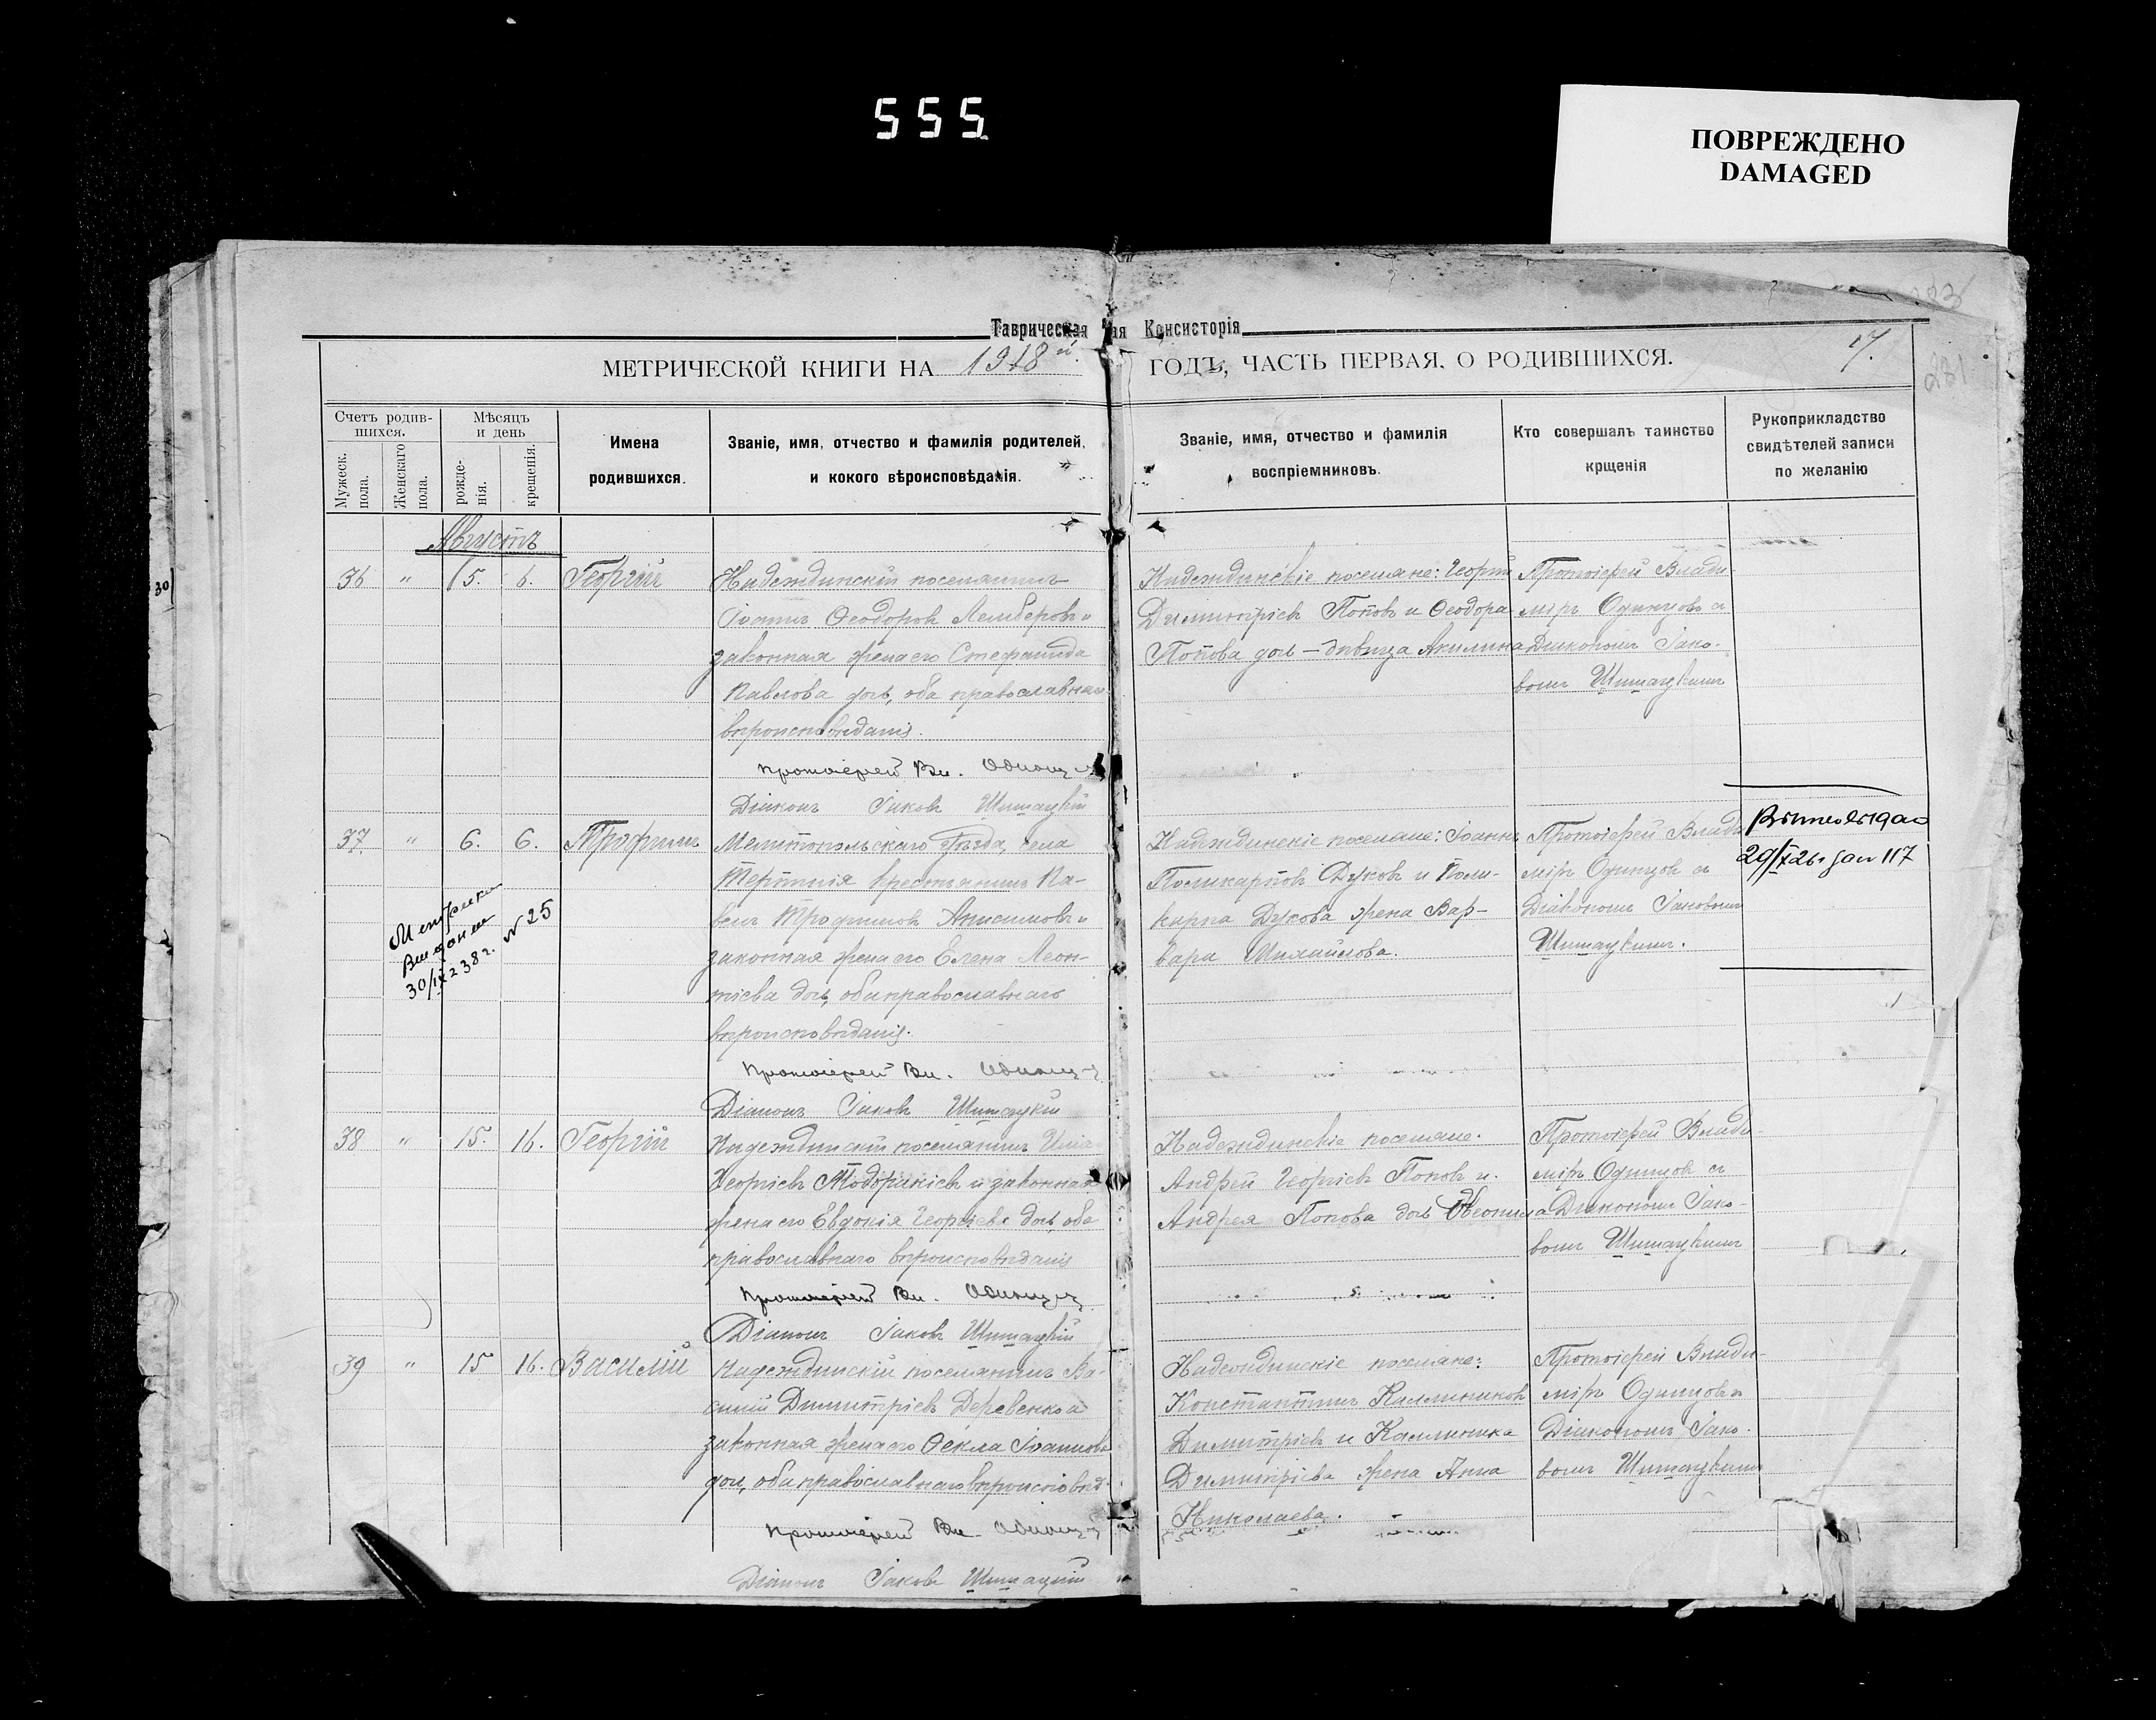 555
ПОВРЕЖДЕНО
DAMAGED
Таврическая
Консисторія
МЕТРИЧЕСКОЙ КНИГИ НА 1918й
ГОДЪ, ЧАСТЬ ПЕРВАЯ, О РОДИВШИХСЯ.
231
Счетъ родив-
шихся.
Мужеск.
пола.
Женскаго
пола.
Мѣсяцъ
и день
рожде-
нія.
крещенія.
Имена
родившихся.
Званіе, имя, отчество и фамилія родителей,
и кокого вѣроисповѣданія.
Званіе, имя, отчество и фамилія
воспріемниковъ.
Кто совершалъ таинство
крщенія
Рукоприкладство
свидѣтелей записи
по желанію
30
Августъ
36 " 5. 6. Георгій
Надеждинскій поселянинъ
Іоаннъ Ѳеодоровъ и
законная жена его Стефанида
Павлова дочь, оба православнаго
вѣроисповѣданія.
Протоіерей Вл. Одинцовъ
Діаконъ Іаковъ Шишацкій
Надеждинскіе поселяне: Георгій
Димитріевъ Поповъ и Ѳеодора
Попова дочь — дѣвица Акилина
Протоіерей Влади-
міръ Одинцовъ съ
Діакономъ Іако-
вомъ Шишацкимъ
37. " 6. 6. Трофимъ
Мелитопольскаго уѣзда, села
Терпѣнія крестьянинъ Па-
велъ Трофимовъ Анисимовъ и
законная жена его Елена Леон-
тіева дочь, оба православнаго
вѣроисповѣданія.
Протоіерей Вл. Одинцовъ
Діаконъ Іаковъ Шишацкій
Надеждинскіе поселяне: Іоаннъ
Поликарповъ Дуковъ и Поли-
карпа Дукова жена Вар-
вара Михайлова.
Протоіерей Влади-
міръ Одинцовъ съ
Діакономъ Іаковомъ
Шишацкимъ.
29/X 26 117
Метрика
Выдана
30/IX 238 г. N 25
38 " 15. 16. Георгій
Надеждинскій поселянинъ Илія
Георгіевъ и законная
жена его Евдокія Георгіева дочь, оба
православнаго вѣроисповѣданія
Протоіерей Вл. Одинцовъ
Діаконъ Іаковъ Шишацкій
Надеждинскіе поселяне.
Андрей Георгіевъ Поповъ и
Андрея Попова дочь
Протоіерей Влади-
міръ Одинцовъ съ
Діакономъ Іако-
вомъ Шишацкимъ
39 " 15 16. Василій
Надеждинскій поселянинъ Ва-
силій Димитріевъ Деревенко и
законная жена его Ѳекла Іоаннова
дочь, оба православнаго вѣроисповѣд.
Протоіерей Вл. Одинцовъ
Діаконъ Іаковъ Шишацкій
Надеждинскіе поселяне:
Константинъ Каллиниковъ
Димитріевъ и Каллиника
Димитріева жена Анна
Николаева.
Протоіерей Влади-
міръ Одинцовъ съ
Діакономъ Іако-
вомъ Шишацкимъ